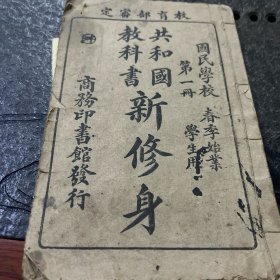 教育部審定
國民學校
春季始業
第一冊
學生用
共和國
教科書
新修身
商務印書館發行